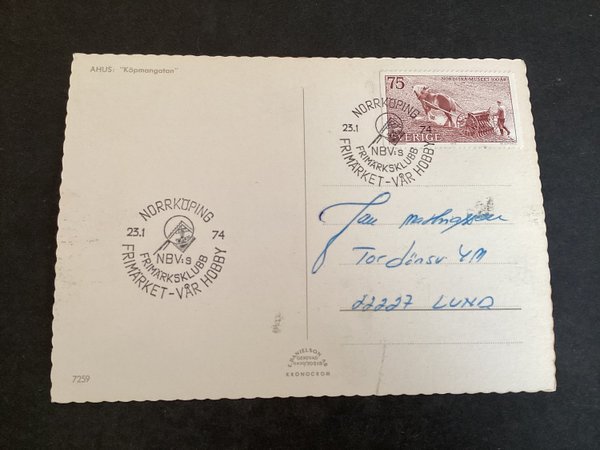 AHUS: "Köpmangatan"
75
NORDISKA MUSEET 100 ÅR
SVERIGE
NORRKÖPING
23.1 74
NBV:s
FRIMÄRKSKLUBB
FRIMÄRKET-VÅR HOBBY
NORRKÖPING
23.1 74
NBV:s
FRIMÄRKSKLUBB
FRIMÄRKET-VÅR HOBBY
Jan
Tordönsv 4M
22227 LUND
7259
KRONOCROM